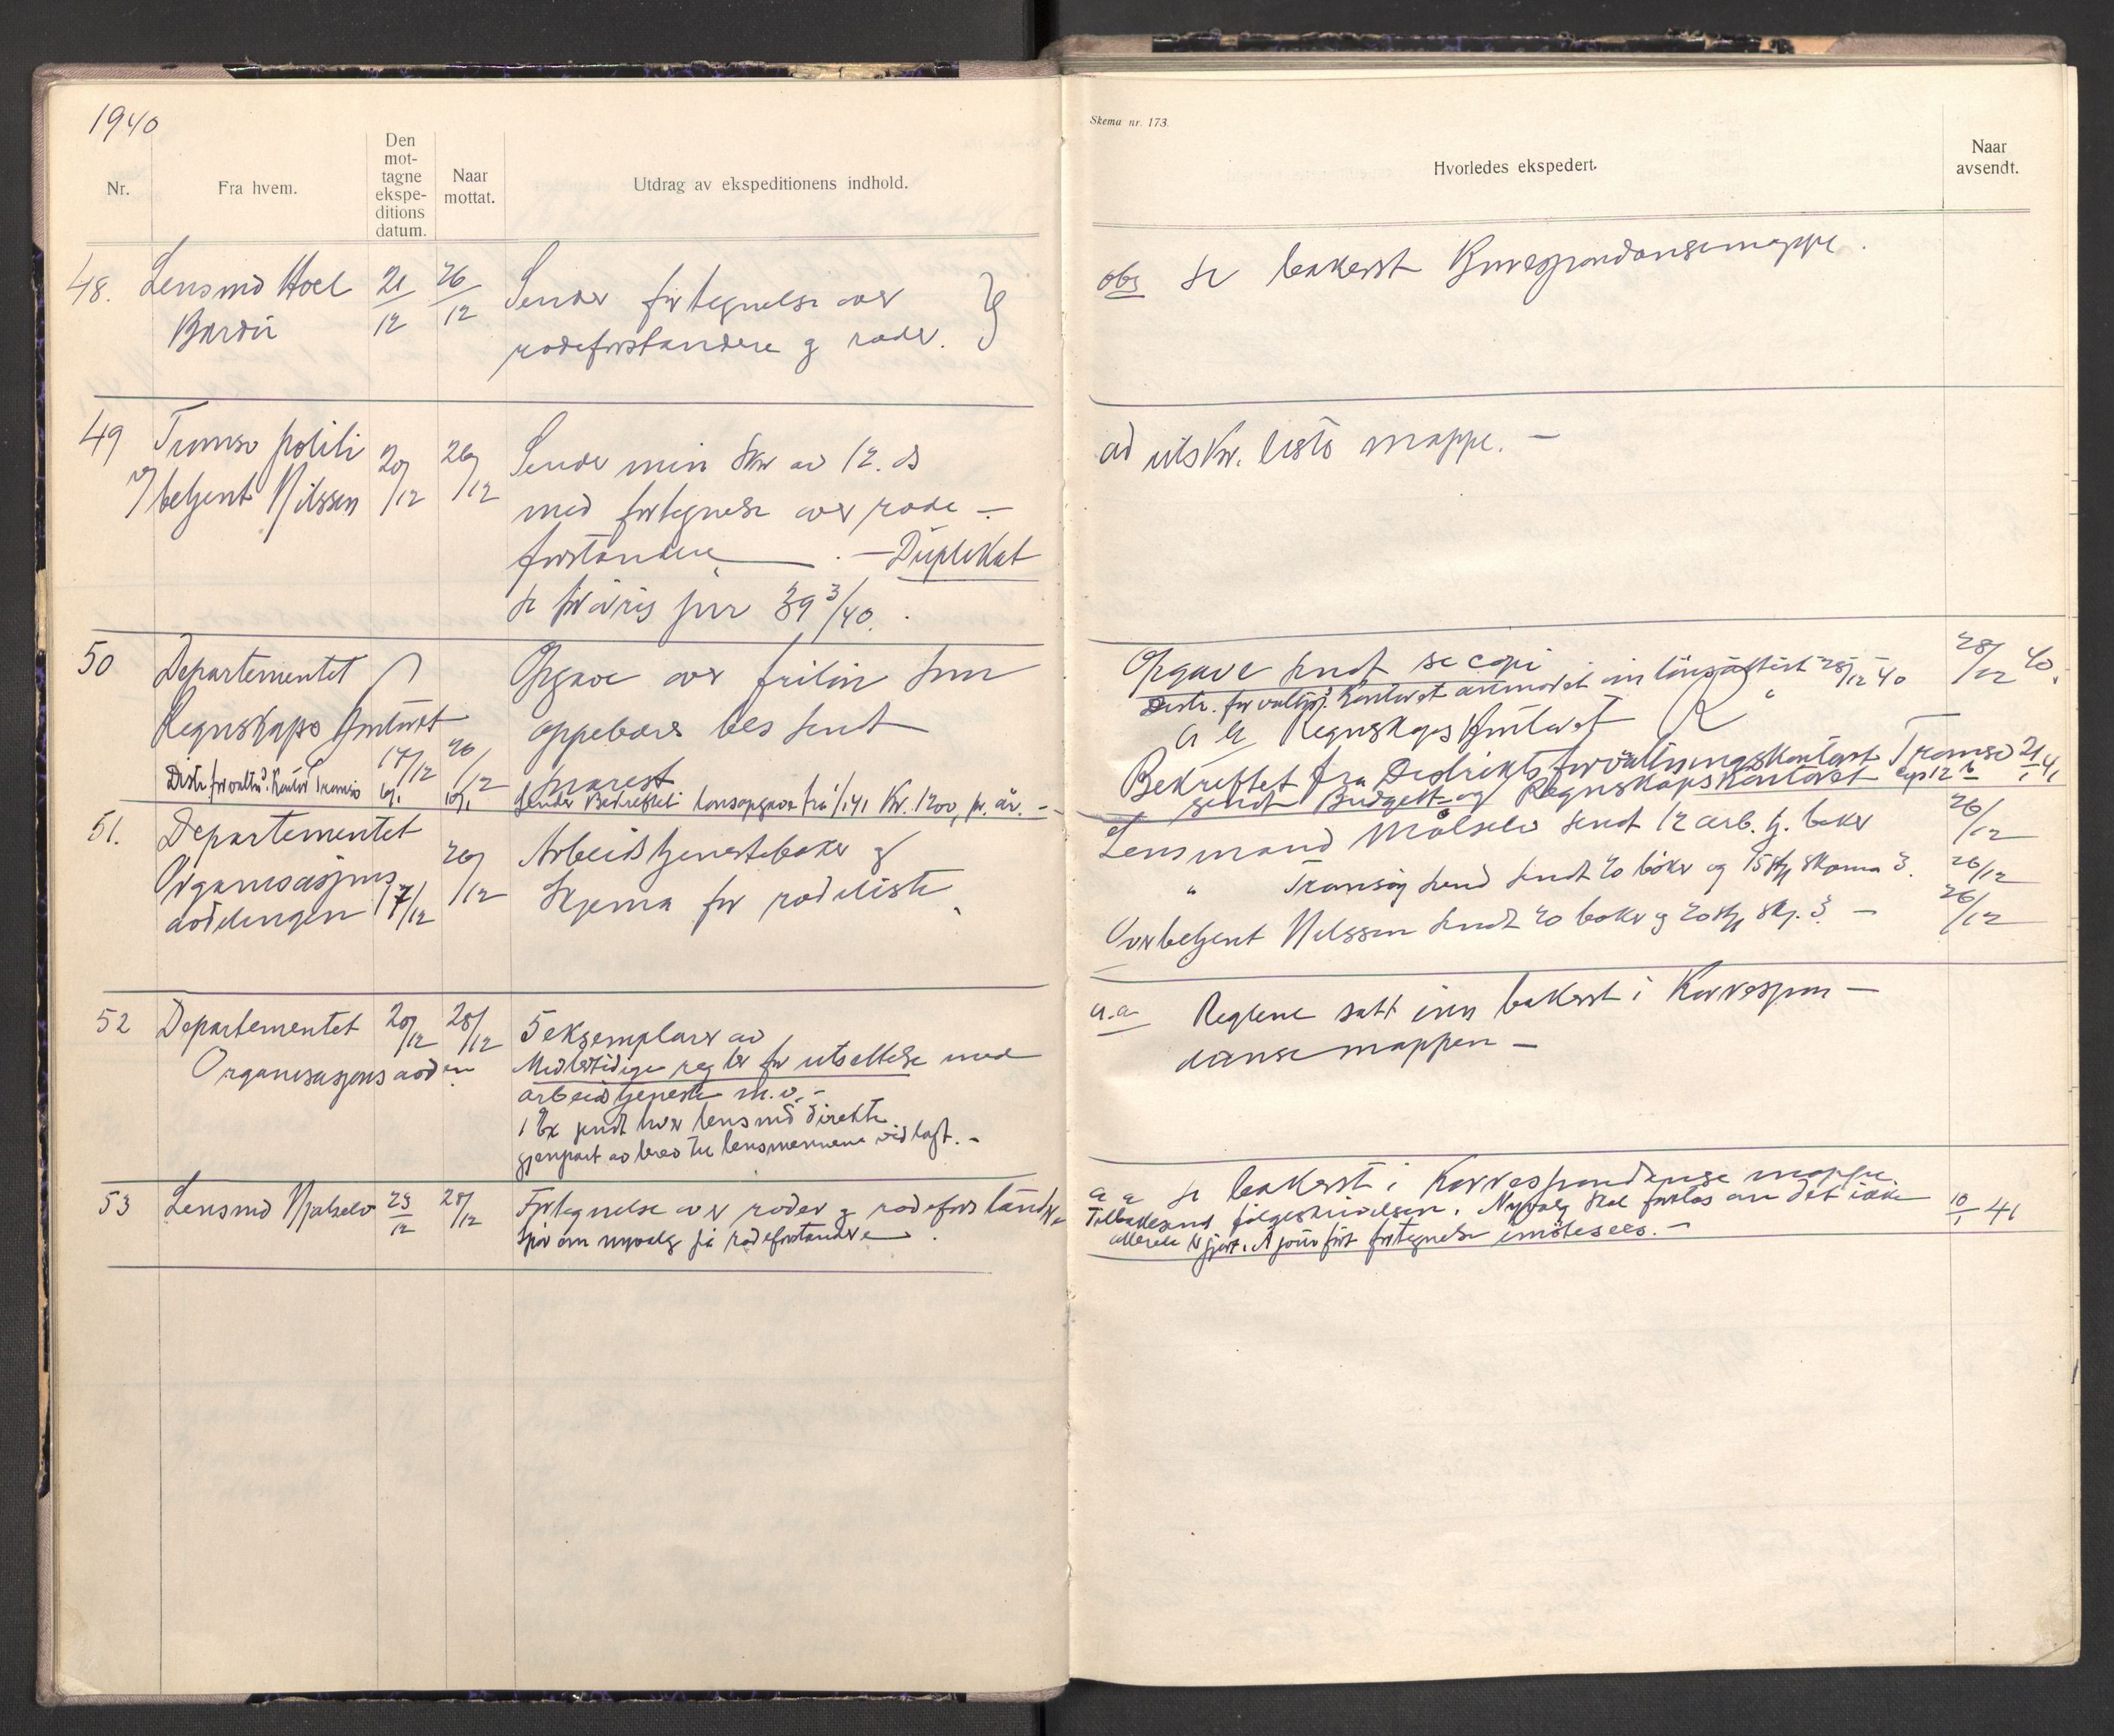 1940
Nr.
Fra hvem.
Den
mot-
tagne
ekspe-
ditions
datum.
Naar
mottat.
Utdrag av ekspeditionens indhold.
48. Lensmd Hoel 21/12 26/12 Sender fortegnelse over
Bardu
rodeforstandere og roder.
49 Tromsø politi 20/12 26/12 Sender min skr av 12. ds
v/ betjent Nilssen
med fortegnelse over rode –
forstandere . – Duplikat
se forøvrig jnr 39 3/40.
50 Departementet
Opgave over
Regnskaps kontoret 17/12 26/12
oppebæres bes sendt
snarest
Distr. forvaltn. Kontor Tromsø
Sender Bekreftet lønsopgave fra 1/1 41 Kr. 1200, pr. år. –
51. Departementet 17/12 26/12 Arbeidstjenestebøker og
Organisasjons
Skjema for rodeliste
avdelingen
52 Departementet 20/12 28/12 5 eksemplarer av
Organisasjonsavd
Midlertidige regler for utsettelse med
arbeidstjeneste m.v. –
1 Ex sendt hver lensmd direkte
gjenpart av brev til lensmennene vidlagt. –
53 Lensmd Målselv 23/12 28/12 Fortegnelse over roder og rodeforstandere
Spør om nyvalg på rodeforstandere .
Skema nr. 173.
Hvorledes ekspedert.
Naar
avsendt.
obs se bakerst Korrespondansemappe.
ad utskr. liste mappe. –
Opgave sendt se copi 28/12 40.
Distr. forvaltn. Kontoret
Regnskapskontoret
Bekreftet fra Distriktsforvaltningskontoret Tromsø 21/1 41
sendt Budgett- og Regnskapskontoret
Lensmand Målselv sendt 12 arb. tj. bøker 26/12
" Tranøy sendt 20 bøker og 15 stk skema 3. 26/12
Overbetjent Nilssen sendt 20 bøker og 20 stk skj. 3 – 26/12
a.a Reglene satt inn bakerst i Korrespon –
danse mappen –
a a se bakerst i Korrespondanse mappe.
Tilbakesend følgeskrivelsen. Nyvalg skal foretas om det ikke 10/1 41
allerede er gjort. A jour ført fortegnelse imøtesees. –